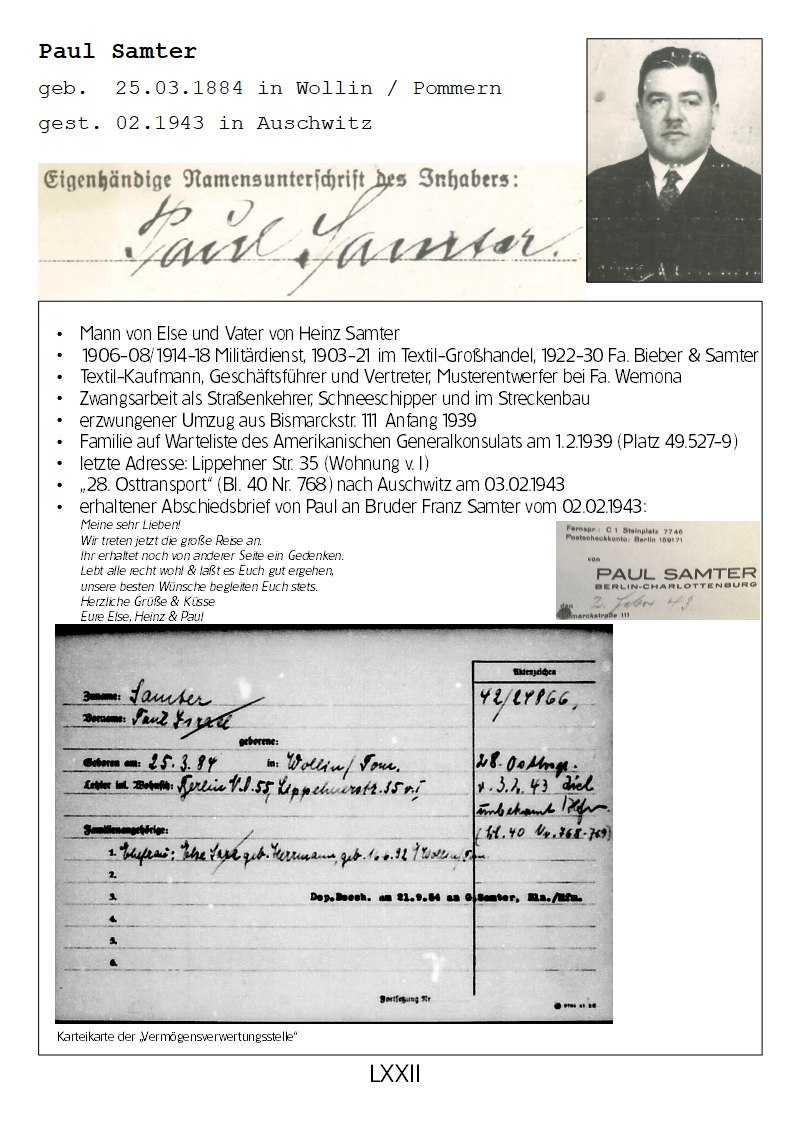 Paul Samter
geb.  25.03.1884 in Wollin / Pommern
gest. 02.1943 in Auschwitz
Eigenhändige Namensunterschrift des Inhabers:
Paul Samter.
• Mann von Else und Vater von Heinz Samter
• 1906-08/1914-18 Militärdienst, 1903-21 im Textil-Großhandel, 1922-30 Fa. Bieber & Samter
• Textil-Kaufmann, Geschäftsführer und Vertreter, Musterentwerfer bei Fa. Wemona
• Zwangsarbeit als Straßenkehrer, Schneeschipper und im Streckenbau
• erzwungener Umzug aus Bismarckstr. 111 Anfang 1939
• Familie auf Warteliste des Amerikanischen Generalkonsulats am 1.2.1939 (Platz 49.527-9)
• letzte Adresse: Lippehner Str. 35 (Wohnung v. I)
• „28. Osttransport“ (Bl. 40 Nr. 768) nach Auschwitz am 03.02.1943
• erhaltener Abschiedsbrief von Paul an Bruder Franz Samter vom 02.02.1943:
Meine sehr Lieben!
Wir treten jetzt die große Reise an.
Ihr erhaltet noch von anderer Seite ein Gedenken.
Lebt alle recht wohl & laßt es Euch gut ergehen,
unsere besten Wünsche begleiten Euch stets.
Herzliche Grüße & Küsse
Eure Else, Heinz & Paul
Fernspr.: C 1 Steinplatz 7746
Postscheckkonto: Berlin 159171
von
PAUL SAMTER
BERLIN-CHARLOTTENBURG
den 2. Febr. 43.
marckstraße 111
Aktenzeichen
Zuname: Samter
42/24866,
Vorname: Paul Israel
geborene:
Geboren am: 25.3.84 in: Wollin/Pom.
28. Osttrsp.
Letzter inl. Wohnsitz: Berlin Lippehnerstr. 35 v. I
v. 3.2.43 Ziel
unbekannt
Familienangehörige:
(Bl. 40 Nr. 768-769)
1. Ehefrau: Else Sara geb. Herrmann, geb. Wollin/Pom
2.
3. am 21.9.64 an Samter,
4.
5.
6.
Fortsetzung Nr.
Karteikarte der „Vermögensverwertungsstelle“
LXXII